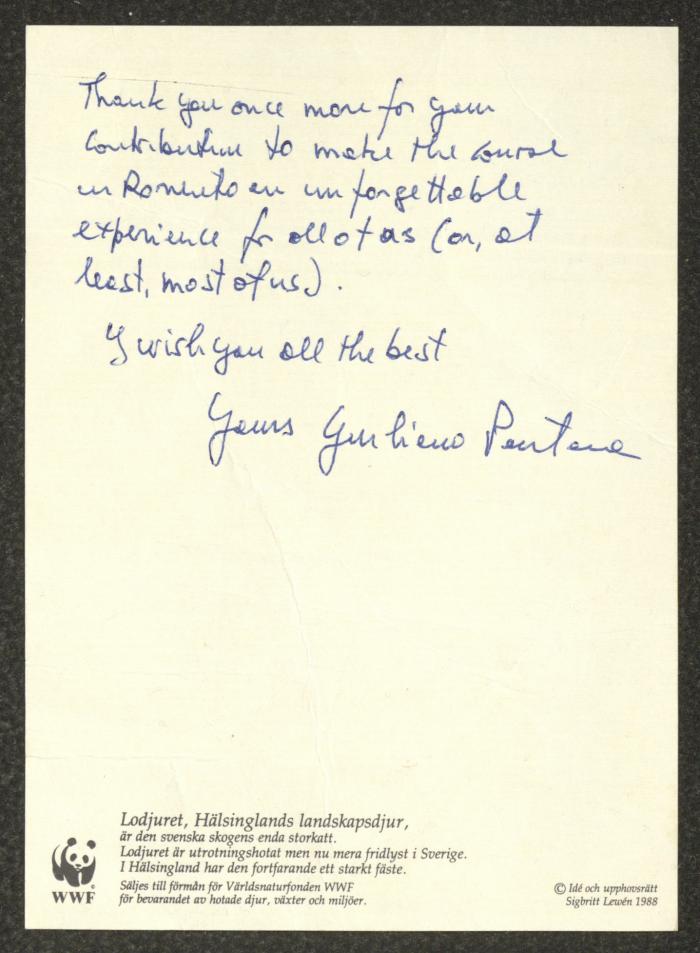 Thank you once more for your
contribution to make the course
in Ronneby an unforgettable
experience for all of us (or, at
least, most of us).
I wish you all the best
Yours Giuliano
Lodjuret, Hälsinglands landskapsdjur,
är den svenska skogens enda storkatt.
Lodjuret är utrotningshotat men nu mera fridlyst i Sverige.
I Hälsingland har den fortfarande ett starkt fäste.
Säljes till förmån för Världsnaturfonden WWF
för bevarandet av hotade djur, växter och miljöer.
WWF
© Idé och upphovsrätt
Sigbritt Lewén 1988